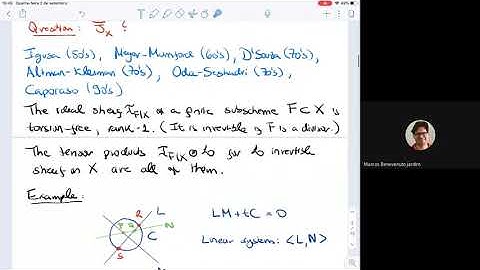 Question: J̄_X ?
Igusa (50's), Mayer-Mumford (60's), D'Souza (70's),
Altman-Kleiman (70's), Oda-Seshadri (70's),
Caporaso (90's)
The ideal sheaf I_{F|X} of a finite subscheme F⊂X is
torsion-free, rank-1. (It is invertible if F is a divisor.)
The tensor products I_{F|X}⊗L for L invertible
sheaf on X are all of them.
Example:
R L
P Q N
C
S
M
LM+tC=0
Linear system: <L,N>
Marcos Benevenuto Jardim